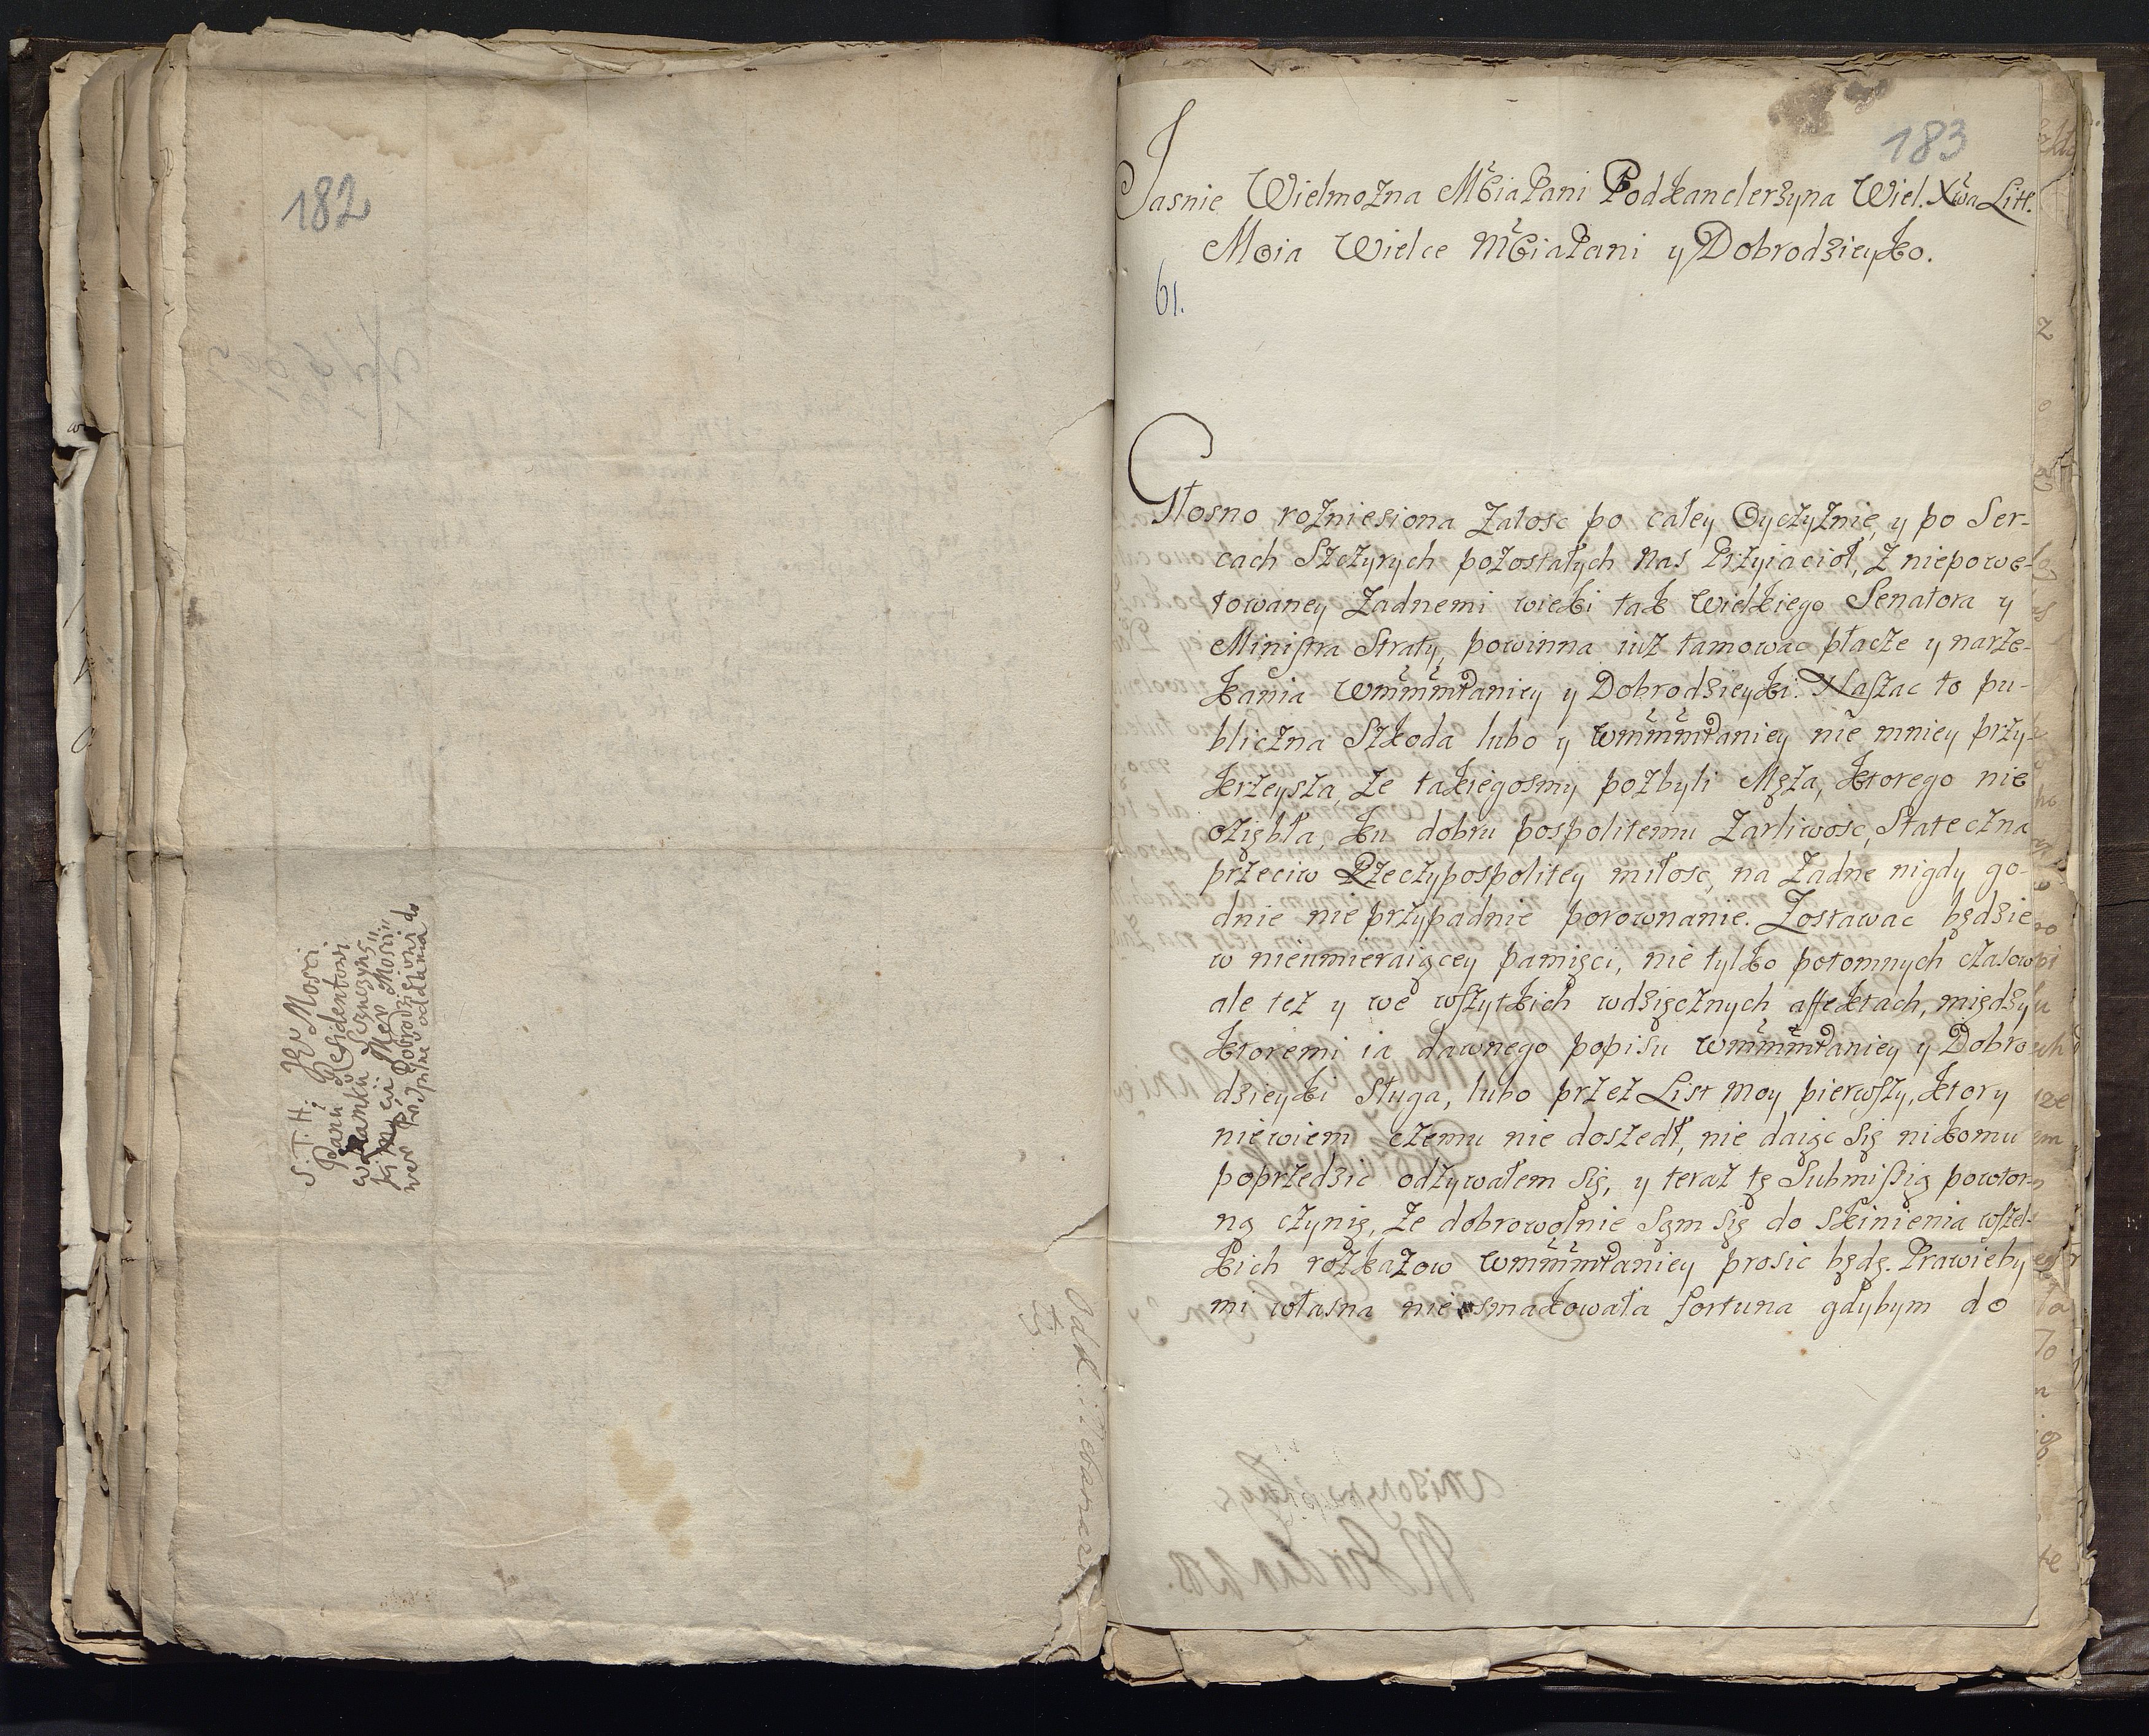 182
S. T. H. JEgo Mości
Panu Residentowi
w Zamku
Odd.
183
Jasnie Wielmożna Mćia Pani Podkanclerzyna Wiel. Xwa Litt.
Moia Wielce Mćia Pani y Dobrodzieyko.
61.
Głosno rozniesiona Załosc po całey Oyczyznie, y po Ser-
cach Szczyrych pozostałych nas Przyiacioł, z niepowe-
towaney Zadnemi wieki tak Wielkiego Senatora y
Ministra Straty, powinna iuz tamowac płacze y narze-
kania WmmmPaniey y Dobrodzieyki. Naszac to pu-
bliczna Szkoda lubo y WmmmPaniey nie mniey przy-
krzeysza, ze takiegosmy pozbyli Męża, ktorego nie
oziębła, ku dobru pospolitemu Zarliwosc, Stateczna
przeciw Rzeczypospolitey miłosc, na Zadne nigdy go-
dnie nie przypadnie porownanie. Zostawac będzie
w nieumieraiącey pamięci, nie tylko potomnych czasow
ale tez y we wszytkich wdzięcznych affektach, między
ktoremi ia dawnego popisu WmmmPaniey y Dobro
dzieyki Sługa, lubo przez List moy pierwszy, ktory
niewiem czemu nie doszedł, nie daiąc się nikomu
poprzedzic odzywałem się, y teraz tę Submissią powtor-
ną czynię, ze dobrowolnie sąm się do skinienia wszel-
kich rozkazow WmmmPaniey prosic będę. Prawieby
mi własna nie smakowała fortuna gdybym do